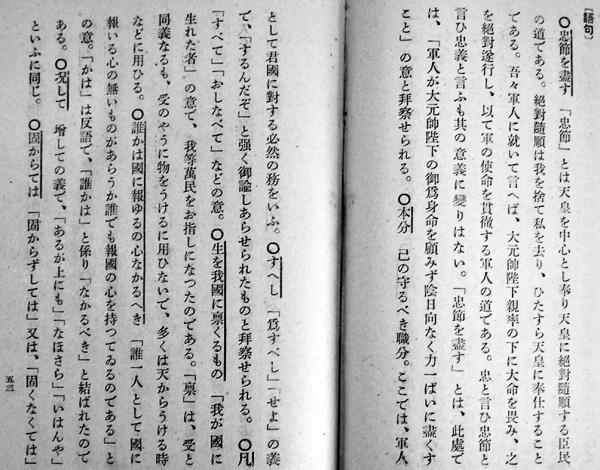 〔語句〕
〇忠節を盡す 「忠節」とは天皇を中心とし奉り天皇に絕對隨順する臣民
の道である。絕對隨順は我を捨て私を去り、ひたすら天皇に奉仕すること
である。吾々軍人に就いて言へば、大元帥陛下親率の下に大命を畏み、之
を絕對遂行し、以て軍の使命を貫徹する軍人の道である。忠と言ひ忠節と
言ひ忠義と言ふも其の意義に變りはない。「忠節を盡す」とは、此處で
は、「軍人が大元帥陛下の御爲身命を顧みず陰日向なく力一ぱいに盡くす
こと」の意と拜察せられる。〇本分 己の守るべき職分。ここでは、軍人
として君國に對する必然の務をいふ。〇すへし 「爲すべし」「せよ」の義
で、「するんだぞ」と强く御諭しあらせられたものと拜察せられる。〇凡
「すべて」「おしなべて」などの意。〇生を我國に稟くるもの 「我が國に
生れた者」の意で、我等萬民をお指しになつたのである。「稟」は、受と
同義なるも、受のやうに物をうけるに用ひないで、多くは天からうける時
などに用ひる。〇誰かは國に報ゆるの心なかるへき 「誰一人として國に
報いる心の無いものがあらうか誰でも報國の心を持つてゐるのである」と
の意。「かは」は反語で、「誰かは」と係り「なかるべき」と結ばれたので
ある。〇況して 增しての義で、「あるが上にも」「なほさら」「いはんや」
といふに同じ。〇固からては 「固からずしては」又は、「固くなくては」
五三